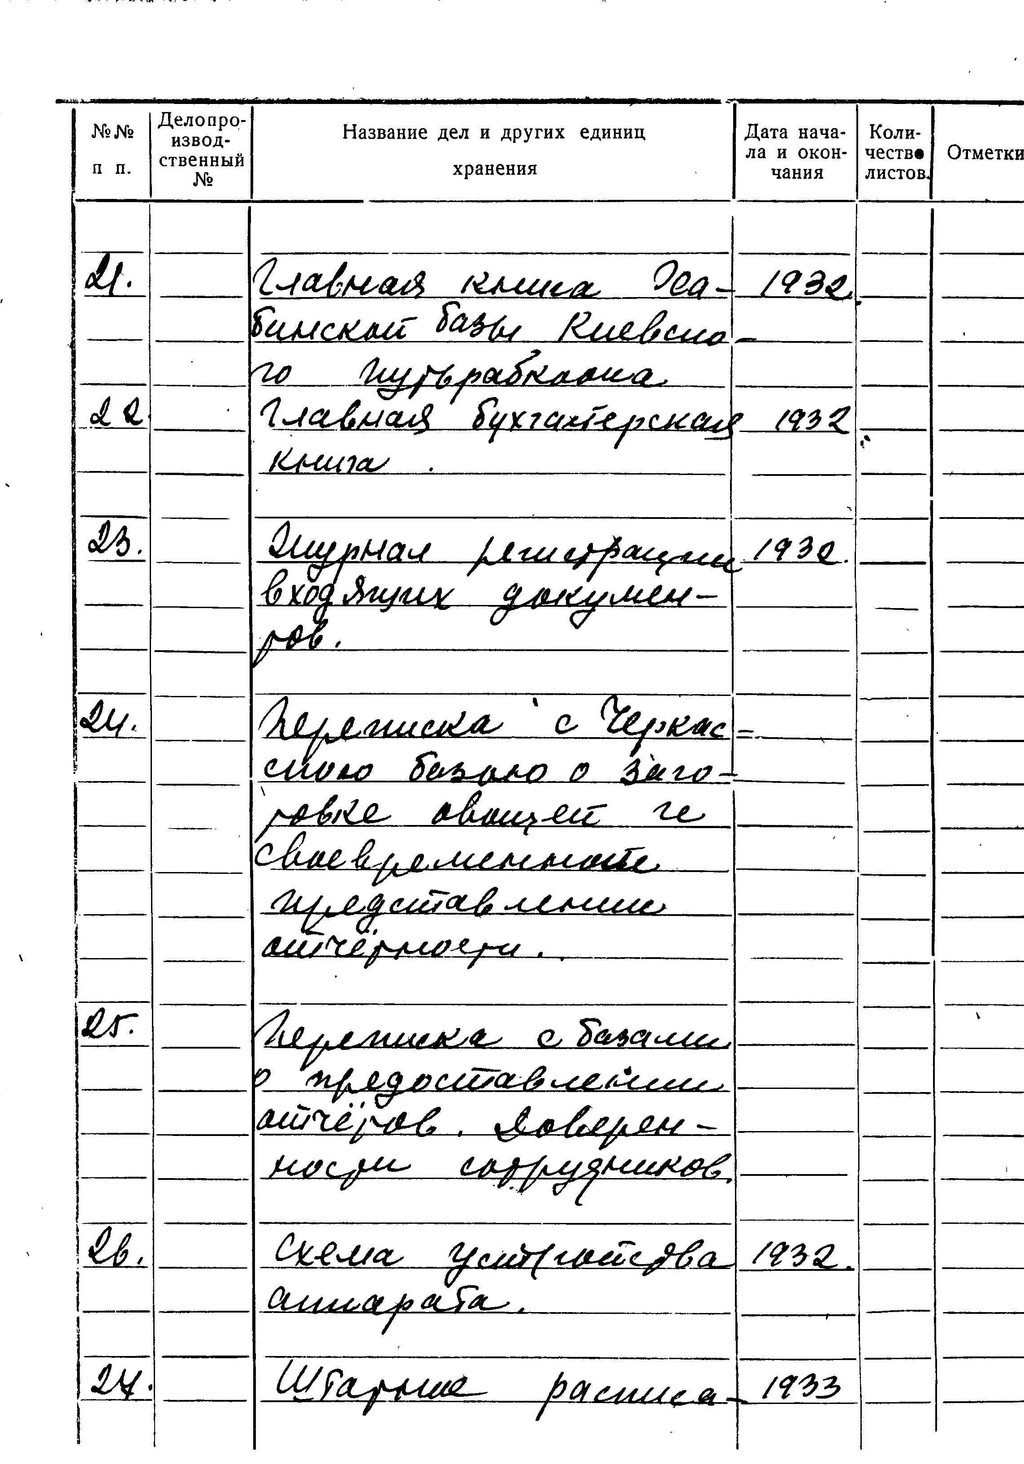 №№ п п.
Делопроизвод-ственный №
Название дел и других единиц хранения
Дата начала и окончания
Количество листов.
Отметки
21. Главная книга 1932
бинской базы Киевско-
го путьрабкоопа
22. Главная бухгалтерская 1932
книга.
23. Журнал регистрации 1932.
входящих докумен-
тов.
24. Переписка с Черкас-
ской базою о заго-
товке овощей
своевременности
представлении
отчётности.
25. Переписка с базами
о предоставлении
отчётов. Доверен-
ности сотрудников.
26. Схема устройства 1932.
аппарата.
27. Штатные расписа- 1933